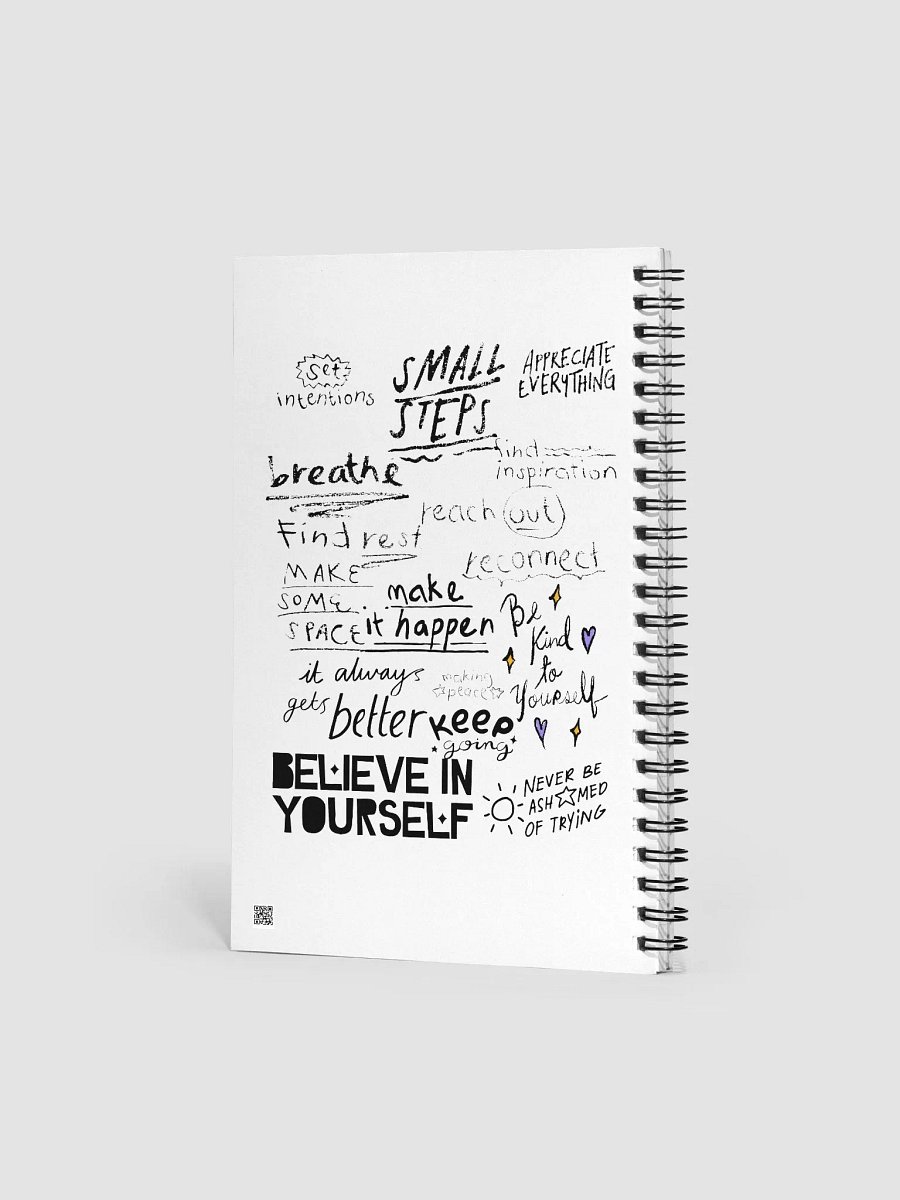 set
intentions
SMALL
STEPS
APPRECIATE
EVERYTHING
breathe
find
inspiration
reach out
Find rest
reconnect
MAKE
SOME
SPACE
make
it happen
Be
Kind
to
Yourself
it always
gets better
making
peace
keep
going
BELIEVE IN
YOURSELF
NEVER BE
ASH☆MED
OF TRYING